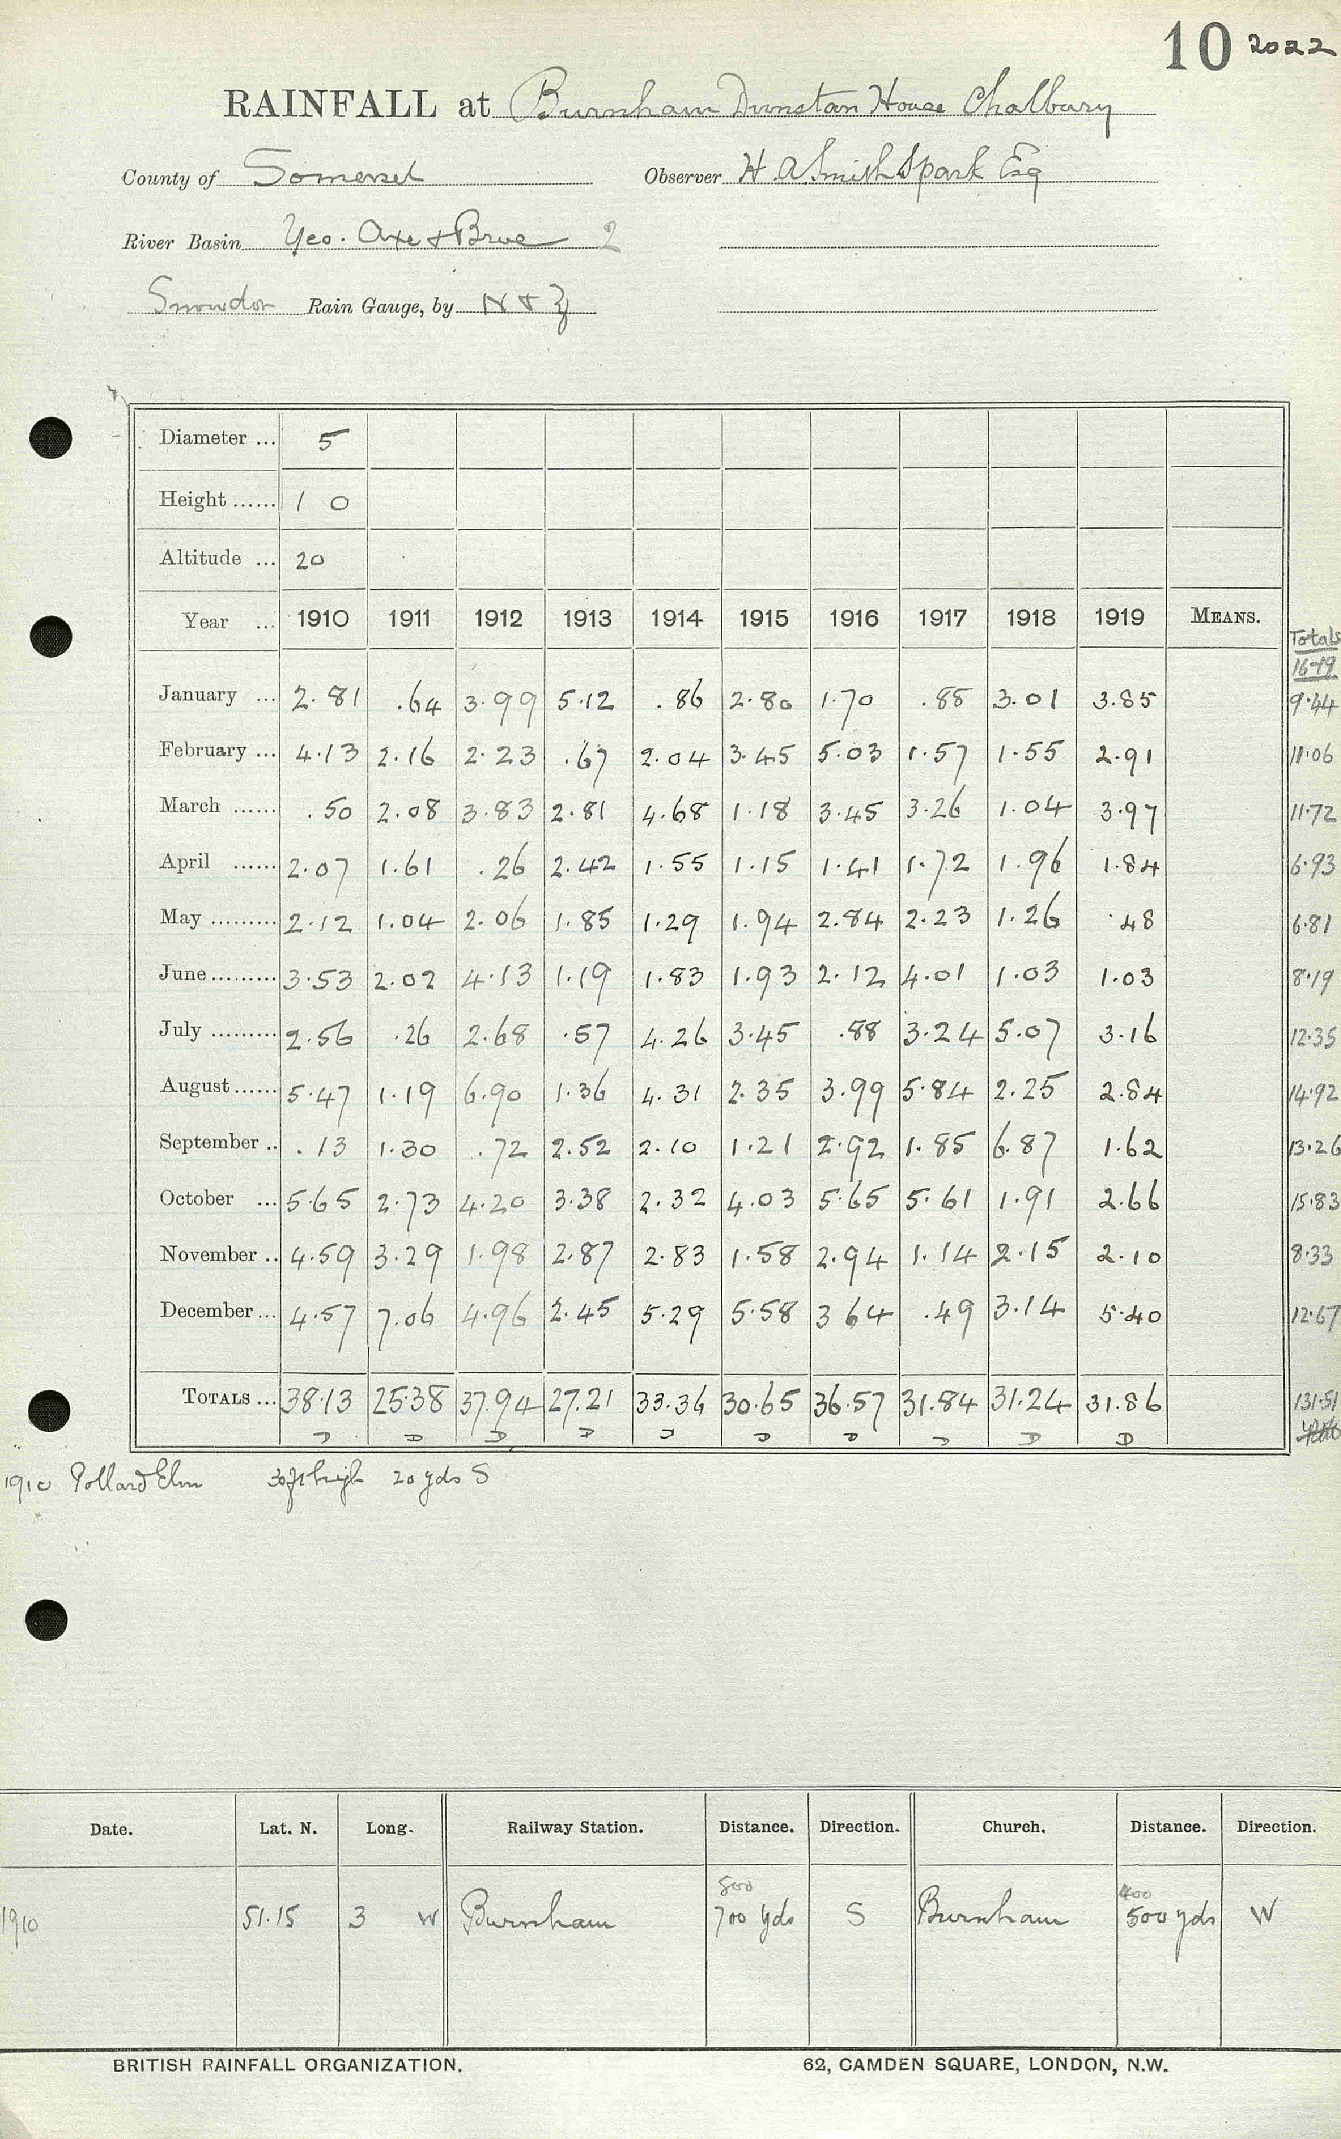 10 2022
RAINFALL at Burnham Dunstan House Chalbury
County of Somerset Observer H A Smith Spark Esq
River Basin Yeo. Axe & Brue 2
Snowdon Rain Gauge, by N & Z
Diameter ... 5
Height ...... 1 0
Altitude ... 20
Year ... 1910 1911 1912 1913 1914 1915 1916 1917 1918 1919 MEANS. Totals
16-19
January ... 2.81 .64 3.99 5.12 .86 2.80 1.70 .88 3.01 3.85 9.44
February ... 4.13 2.16 2.23 .67 2.04 3.45 5.03 1.57 1.55 2.91 11.06
March ...... .50 2.08 3.83 2.81 4.68 1.18 3.45 3.26 1.04 3.97 11.72
April ...... 2.07 1.61 .26 2.42 1.55 1.15 1.41 1.72 1.96 1.84 6.93
May ......... 2.12 1.04 2.06 1.85 1.29 1.94 2.84 2.23 1.26 .48 6.81
June ......... 3.53 2.02 4.13 1.19 1.83 1.93 2.12 4.01 1.03 1.03 8.19
July ......... 2.56 .26 2.68 .57 4.26 3.45 .88 3.24 5.07 3.16 12.35
August ...... 5.47 1.19 6.90 1.36 4.31 2.35 3.99 5.84 2.25 2.84 14.92
September .. .13 1.30 .72 2.52 2.10 1.21 2.92 1.85 6.87 1.62 13.26
October ... 5.65 2.73 4.20 3.38 2.32 4.03 5.65 5.61 1.91 2.66 15.83
November .. 4.59 3.29 1.98 2.87 2.83 1.58 2.94 1.14 2.15 2.10 8.33
December ... 4.57 7.06 4.96 2.45 5.29 5.58 3 64 .49 3.14 5.40 12.67
TOTALS ... 38.13 25.38 37.94 27.21 33.36 30.65 36.57 31.84 31.24 31.86 131.51
D D D D D D D D D D
1910 Pollard Elm 30ft high 20 yds S
Date. Lat. N. Long. Railway Station. Distance. Direction. Church. Distance. Direction.
800 400
1910 51.15 3 W Burnham 700 yds S Burnham 500 yds W
BRITISH RAINFALL ORGANIZATION. 62, CAMDEN SQUARE, LONDON, N.W.